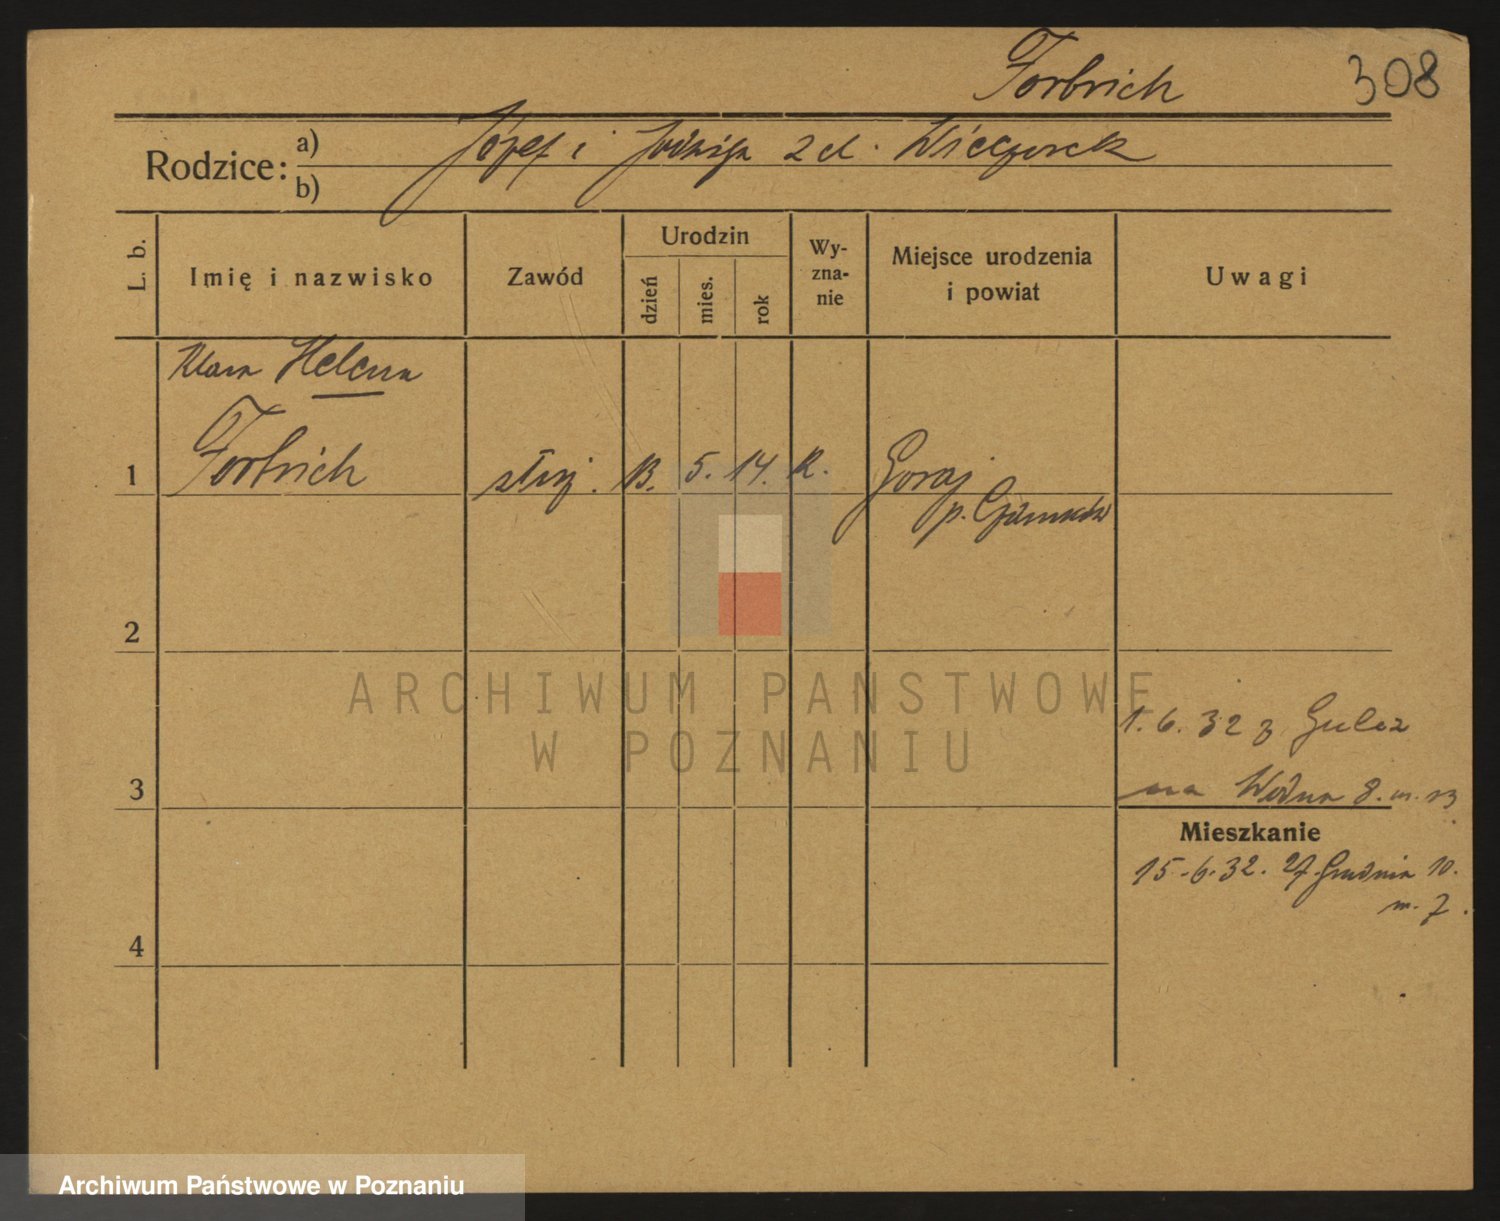 Forbrich 308
Rodzice: a) Józef i Jadwiga z d. Wieczorek
b)
L. b. Imię i nazwisko Zawód Urodzin dzień mies. rok Wy-zna-nie Miejsce urodzenia i powiat Uwagi
Klara Helena
1 Forbrich służ. 13. 5. 14. K. Goraj
p. Czarnków
2
ARCHIWUM PAŃSTWOWE
W POZNANIU
1. 6. 32 z
3 na Wodna 8. m. 13
Mieszkanie
15.6.32. 27 Grudnia 10.
m. 7.
4
Archiwum Państwowe w Poznaniu